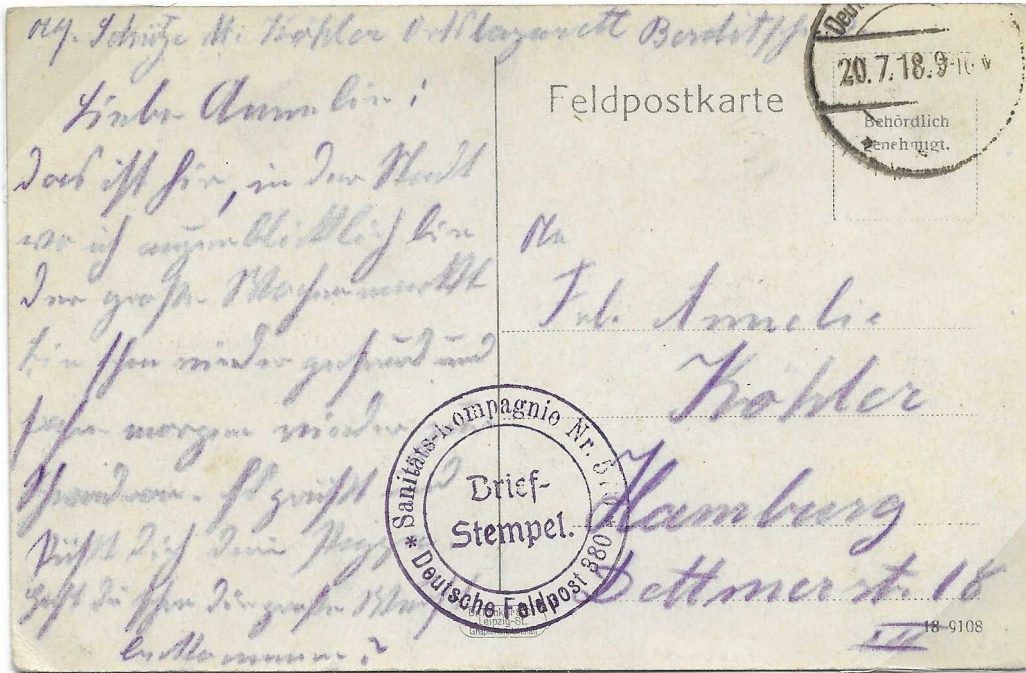 Abs. Schütze M. Köhler Ortslazarett Berditsch
Liebe Annelie!
das ist hier, in der Stadt
wo ich augenblicklich bin
der große Wochenmarkt
bin schon wieder gesund und
fahre morgen wieder
Schwadron. Es grüßt
küßt Dich Dein
hast du schon die große
bekommen?
Feldpostkarte
20.7.18.9-10
Behördlich
genehmigt.
An
Frl. Annelie
Köhler
Hamburg
Dettmerstr. 18
III
* Sanitäts-Kompagnie Nr.
* Deutsche Feldpost 380
Brief-
Stempel.
Leipzig-St.
18 9108